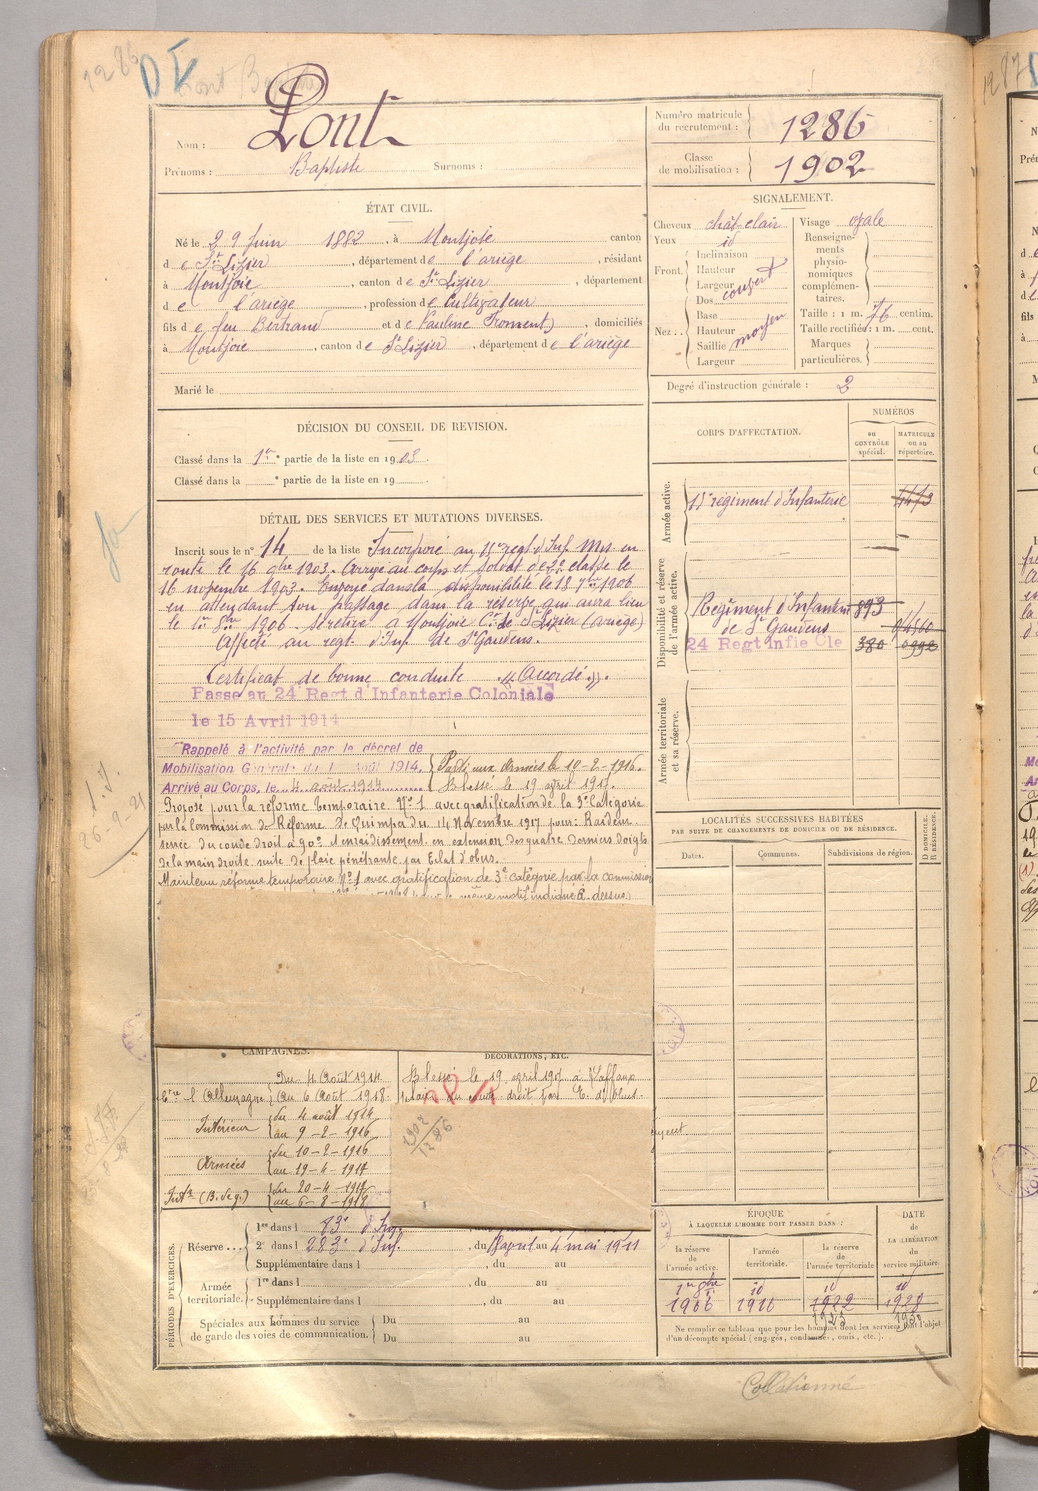 1286
DI
Pont Baptiste
Nom : Pont
Prénoms : Baptiste Surnoms :
Numéro matricule du recrutement : 1286
Classe de mobilisation : 1902
ÉTAT CIVIL.
Né le 29 Juin 1882, à Montjoie canton
d e St Lizier, département de l'ariège, résidant
à Montjoie, canton de St Lizier, département
d e l'ariège, profession de Cultivateur
fils de feu Bertrand et de Pauline Froment, domiciliés
à Montjoie, canton de St Lizier, département de l'ariège
Marié le
SIGNALEMENT.
Cheveux chât clair
Yeux id
Front. Inclinaison
Hauteur
Largeur
Nez : Dos
Base
Hauteur
Saillie moyen
Largeur
Visage ovale
Renseignements physionomiques complémentaires.
Taille : 1 m. 76 centim.
Taille rectifiée : 1 m. cent.
Marques particulières.
Degré d'instruction générale : 2
DÉCISION DU CONSEIL DE REVISION.
Classé dans la 1re partie de la liste en 1903.
Classé dans la e partie de la liste en 19
DÉTAIL DES SERVICES ET MUTATIONS DIVERSES.
Inscrit sous le n° 14 de la liste Incorporé au 11e regt d'Inf. Mis en
route le 16 9bre 1903. Arrivé au corps et soldat de 2e classe le
16 novembre 1903. Envoyé dans la disponibilité le 18 7bre 1906
en attendant son passage dans la réserve qui aura lieu
le 1er 8bre 1906. Se retire à Montjoie Con de St Lizier (Ariège)
Affecté au regt d'Inf. de St Gaudens.
Certificat de bonne conduite "Accordé".
Passé au 24 Regt d'Infanterie Coloniale
le 15 Avril 1914
Rappelé à l'activité par le décret de
Mobilisation Générale du 1 Août 1914.
Arrivé au Corps, le 4 août 1914
Parti aux Armées le 10-2-1916.
Blessé le 19 avril 1917.
Proposé pour la réforme temporaire N°1 avec gratification de la 3e Catégorie
par la Commission de Réforme de Quimper du 14 Novembre 1917 pour : Raideur
serrée du coude droit à 90° et enraidissement en extension des quatre derniers doigts
de la main droite suite de plaie pénétrante par Eclat d'obus.
Maintenu réforme temporaire N°1 avec gratification de 3e catégorie par la commission
même motif indiqué ci-dessus
CORPS D'AFFECTATION.
NUMÉROS
au CONTRÔLE spécial.
MATRICULE ou au répertoire.
Armée active.
11e régiment d'Infanterie
Disponibilité et réserve de l'armée active.
Régiment d'Infanterie 893
de St Gaudens
24 Regt Infie Cle 380 0992
Armée territoriale et sa réserve.
LOCALITÉS SUCCESSIVES HABITÉES
PAR SUITE DE CHANGEMENTS DE DOMICILE OU DE RÉSIDENCE.
Dates. Communes. Subdivisions de région. D DOMICILE. R RÉSIDENCE.
26-9-21
CAMPAGNES.
Ctre l'Allemagne Du 4 Août 1914
Au 6 Août 1918
Intérieur du 4 août 1914
au 9-2-1916
Armées du 10-2-1916
au 19-4-1917
Intr (B. de g.) du 20-4-1917
au 6-8-1918
DÉCORATIONS, ETC.
Blessé le 19 avril 1917 à Laffaux
plaie du coude droit par E. d'obus.
1902
1286
PÉRIODES D'EXERCICES.
Réserve... 1re dans l 83e d'Inf.
2e dans l 283e d'Inf., du avril au 4 mai 1911
Supplémentaire dans l , du au
Armée territoriale. 1re dans l , du au
Supplémentaire dans l , du au
Spéciales aux hommes du service de garde des voies de communication. Du au
Du au
ÉPOQUE
À LAQUELLE L'HOMME DOIT PASSER DANS :
la réserve de l'armée active. l'armée territoriale. la réserve de l'armée territoriale
DATE de LA LIBÉRATION du service militaire.
1er 8bre id id id
1906 1916 1922 1928
1923
Ne remplir ce tableau que pour les hommes dont les services font l'objet
d'un décompte spécial (engagés, condamnés, omis, etc.).
Collationné
1287